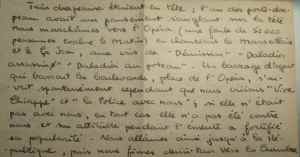 Trois drapeaux étaient en tête ; l'un des porte-dra-
peau avait un pansement sanglant sur la tête
nous marchâmes vers l'Opéra (une foule de 50000
personnes contre le Matin) en chantant la Marseillaise
et le Ça Ira, aux cris de "Démission" - "Daladier
assassin" - "Daladier au poteau". Un barrage d'agents
qui barrait les boulevards, place de l'Opéra, s'ou-
vrit spontanément cependant que nous criions "Vive
Chiappe" et "la Police avec nous" ; si elle n'était
pas avec nous, en tout cas elle n'a pas été contre
nous et son attitude pendant l'émeute a fortifié
sa popularité. Nous allâmes ainsi jusqu'à la Ré-
publique, puis nous fîmes demi-tour vers la Chambre